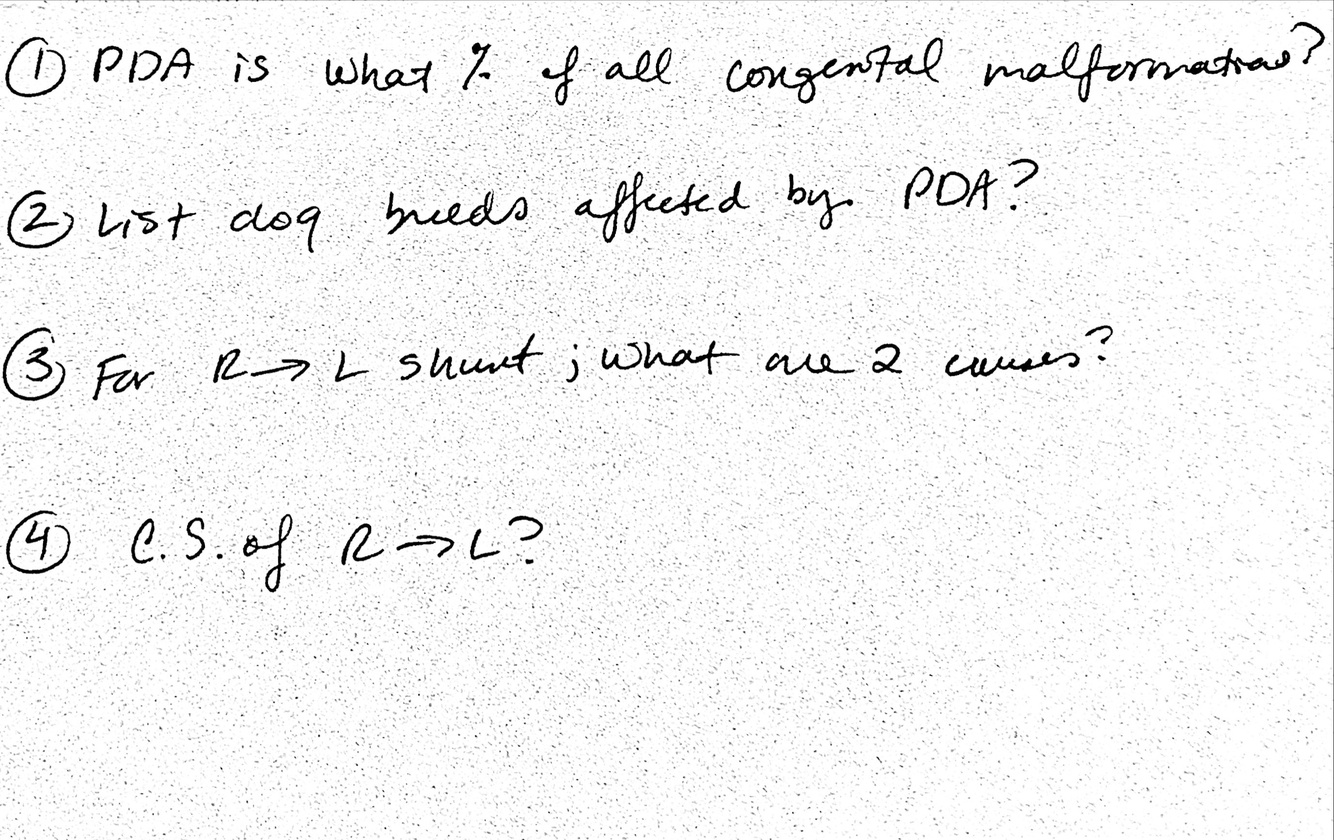 ① PDA is what % of all congenital malformations?
② List dog breeds affected by PDA?
③ For R → L shunt ; what are 2 causes?
④ C.S. of R → L?